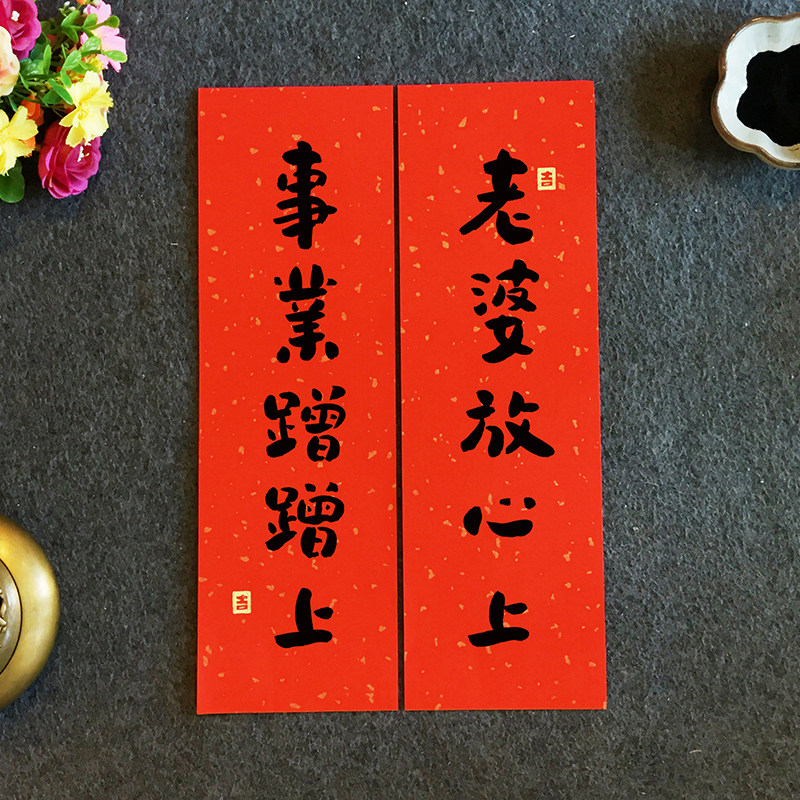 老婆放心上
吉
事業蹭蹭上
吉